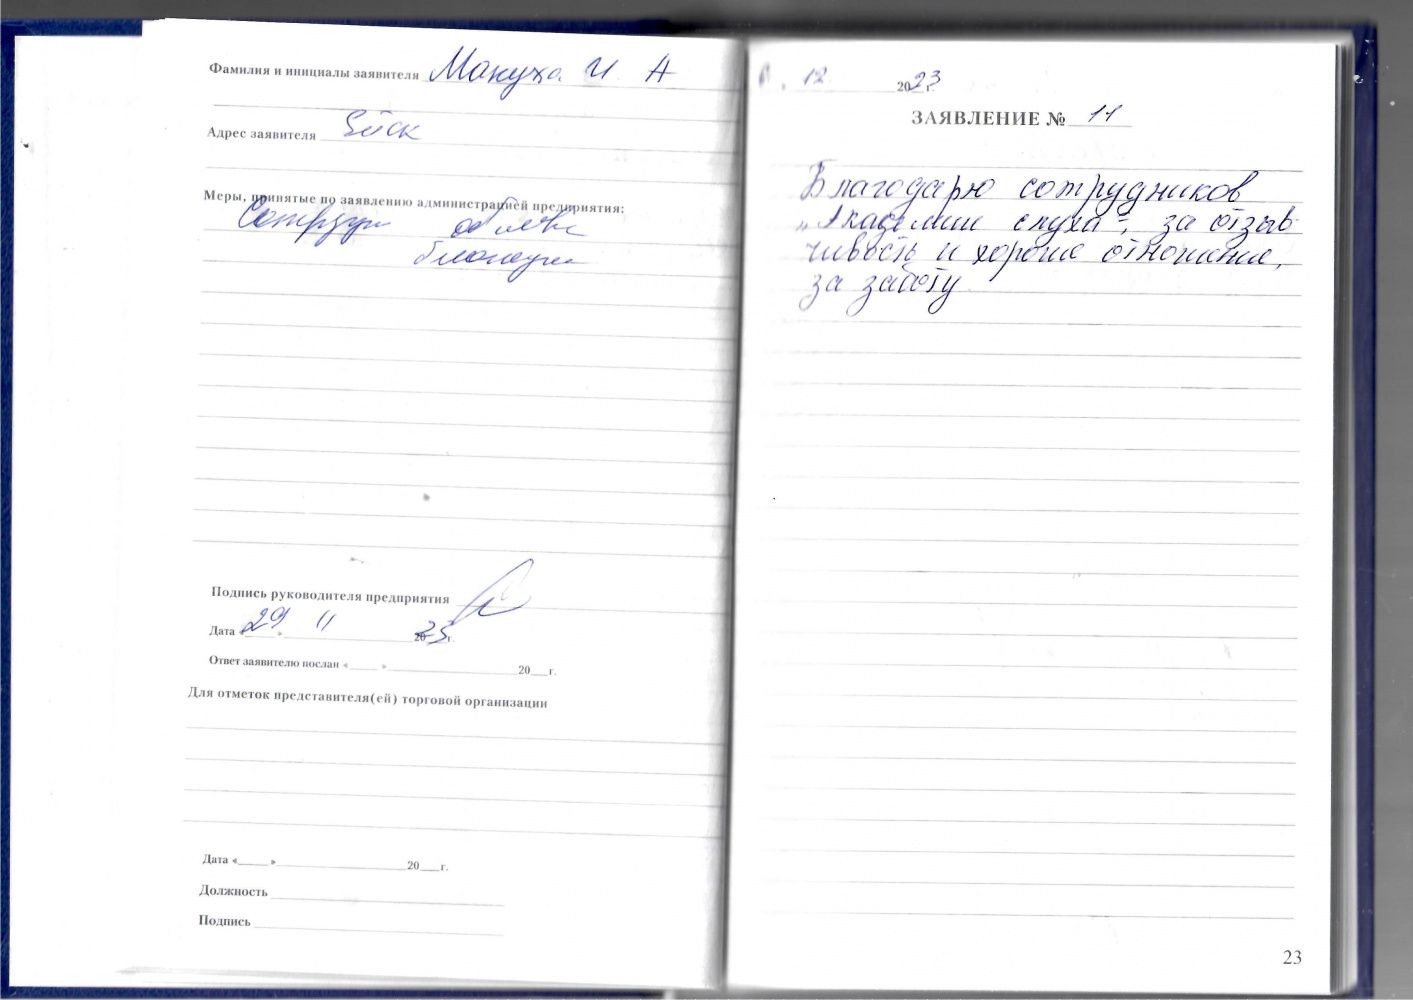 Фамилия и инициалы заявителя Макуха И. А
Адрес заявителя Ейск
Меры, принятые по заявлению администрацией предприятия:
Подпись руководителя предприятия
Дата «29» 11 2023 г.
Ответ заявителю послан «____» ____ 20__г.
Для отметок представителя(ей) торговой организации
Дата «____» ____ 20__г.
Должность
Подпись
12 2023 г.
ЗАЯВЛЕНИЕ № 11
Благодарю сотрудников
„Академии слуха", за отзыв-
чивость и хорошее отношение,
за заботу
23